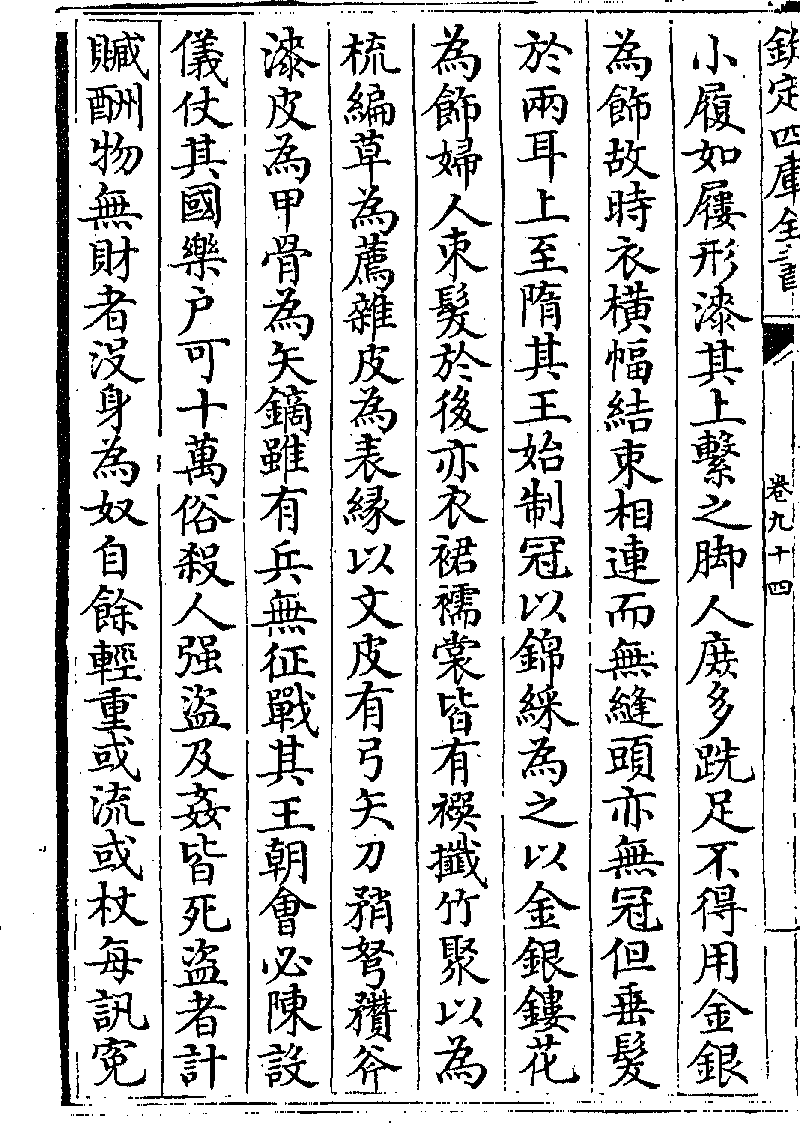 欽定四庫全書
卷九十四
小履如屨形漆其上繫之脚人庶多跣足不得用金銀
為飾故時衣橫幅結束相連而無縫頭亦無冠但垂髮
於兩耳上至隋其王始制冠以錦綵為之以金銀鏤花
為飾婦人束髮於後亦衣裙襦裳皆有襈攕竹聚以為
梳編草為薦雜皮為表緣以文皮有弓矢刀矟弩䂎斧
漆皮為甲骨為矢鏑雖有兵無征戰其王朝會必陳設
儀仗其國樂户可十萬俗殺人强盜及姦皆死盜者計
贓酬物無財者没身為奴自餘輕重或流或杖每訊寃